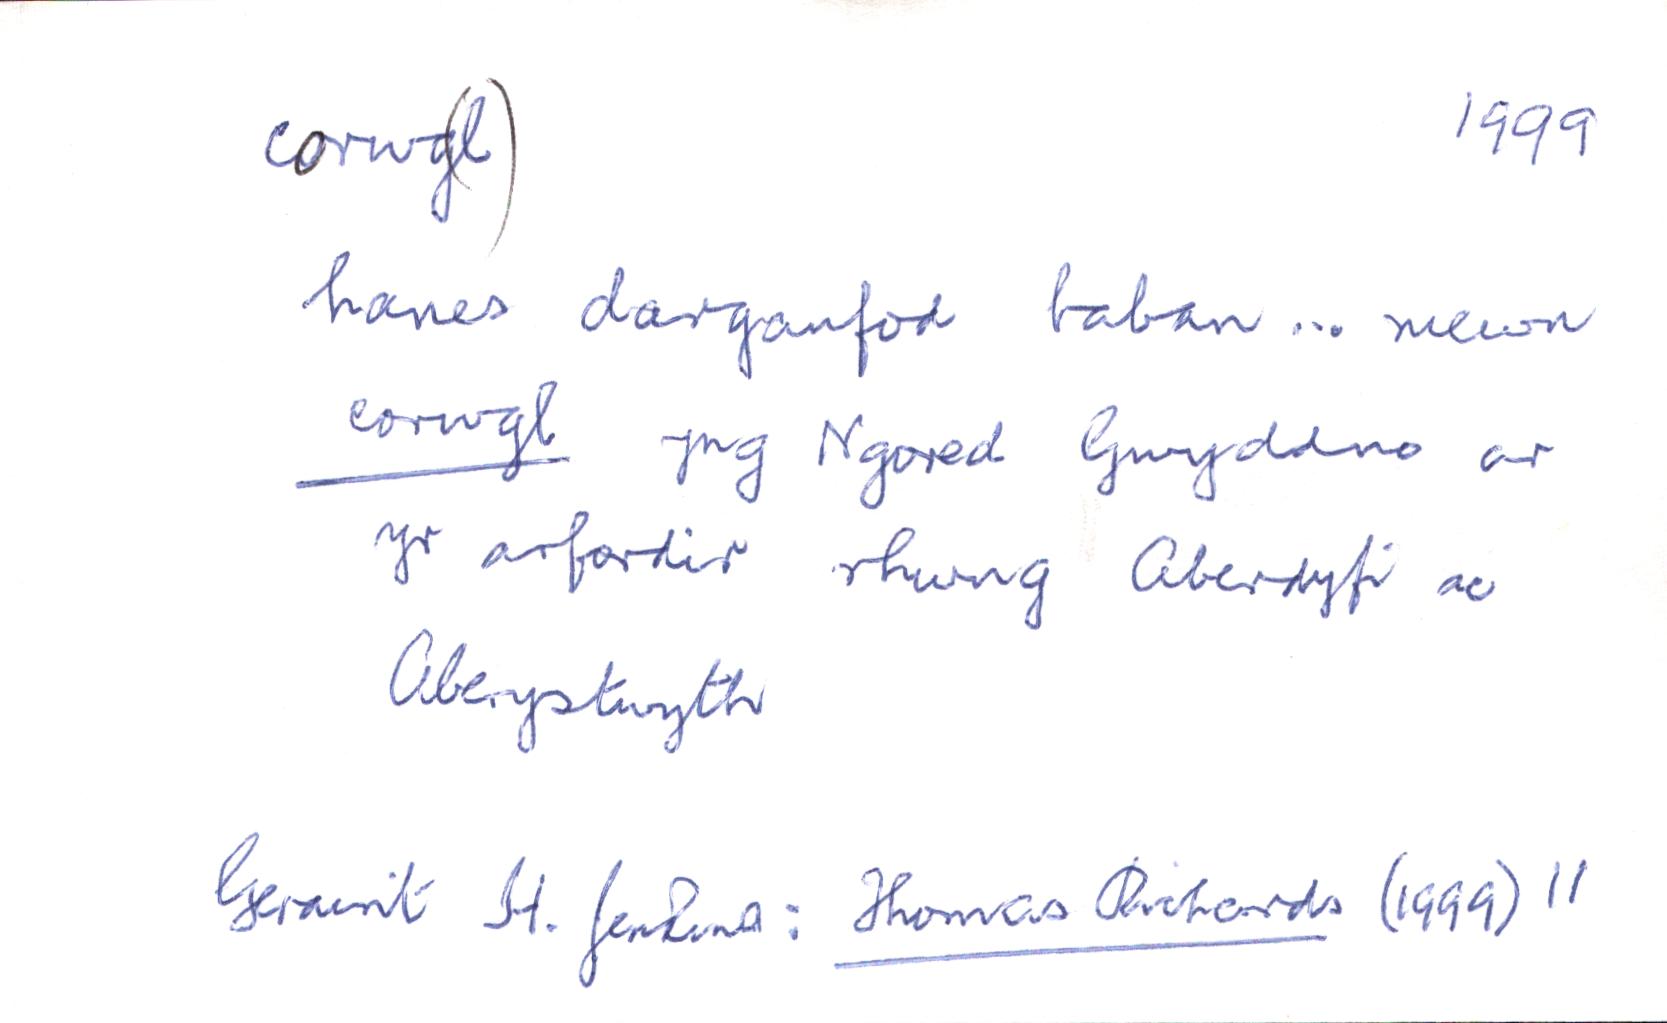 corwg(l) 1999
hanes darganfod baban ... mewn
corwgl yng Ngored Gwyddno ar
yr arfordir rhwng Aberdyfi ac
Aberystwyth
Geraint H. Jenkins: Thomas Richards (1999) 11